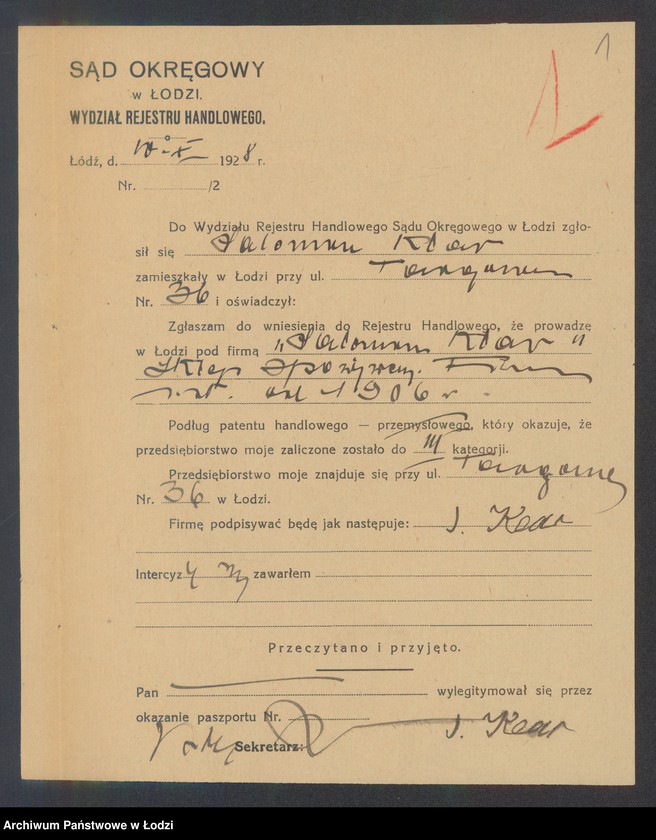 1
SĄD OKRĘGOWY
w ŁODZI.
WYDZIAŁ REJESTRU HANDLOWEGO.
Łódź, d. 10-X 1928 r.
Nr. /2
Do Wydziału Rejestru Handlowego Sądu Okręgowego w Łodzi zgło-
sił się Salomon Klar
zamieszkały w Łodzi przy ul. Targowa
Nr. 36 i oświadczył:
Zgłaszam do wniesienia do Rejestru Handlowego, że prowadzę
w Łodzi pod firmą „Salomon Klar"
Sklep Spożywczy. Firma
od 1906 r.
Podług patentu handlowego — przemysłowego, który okazuje, że
przedsiębiorstwo moje zaliczone zostało do III kategorji.
Przedsiębiorstwo moje znajduje się przy ul. Targowej
Nr. 36 w Łodzi.
Firmę podpisywać będę jak następuje:
Intercyzy nie zawarłem
Przeczytano i przyjęto.
Pan wylegitymował się przez
okazanie paszportu Nr.
Sekretarz:
Archiwum Państwowe w Łodzi